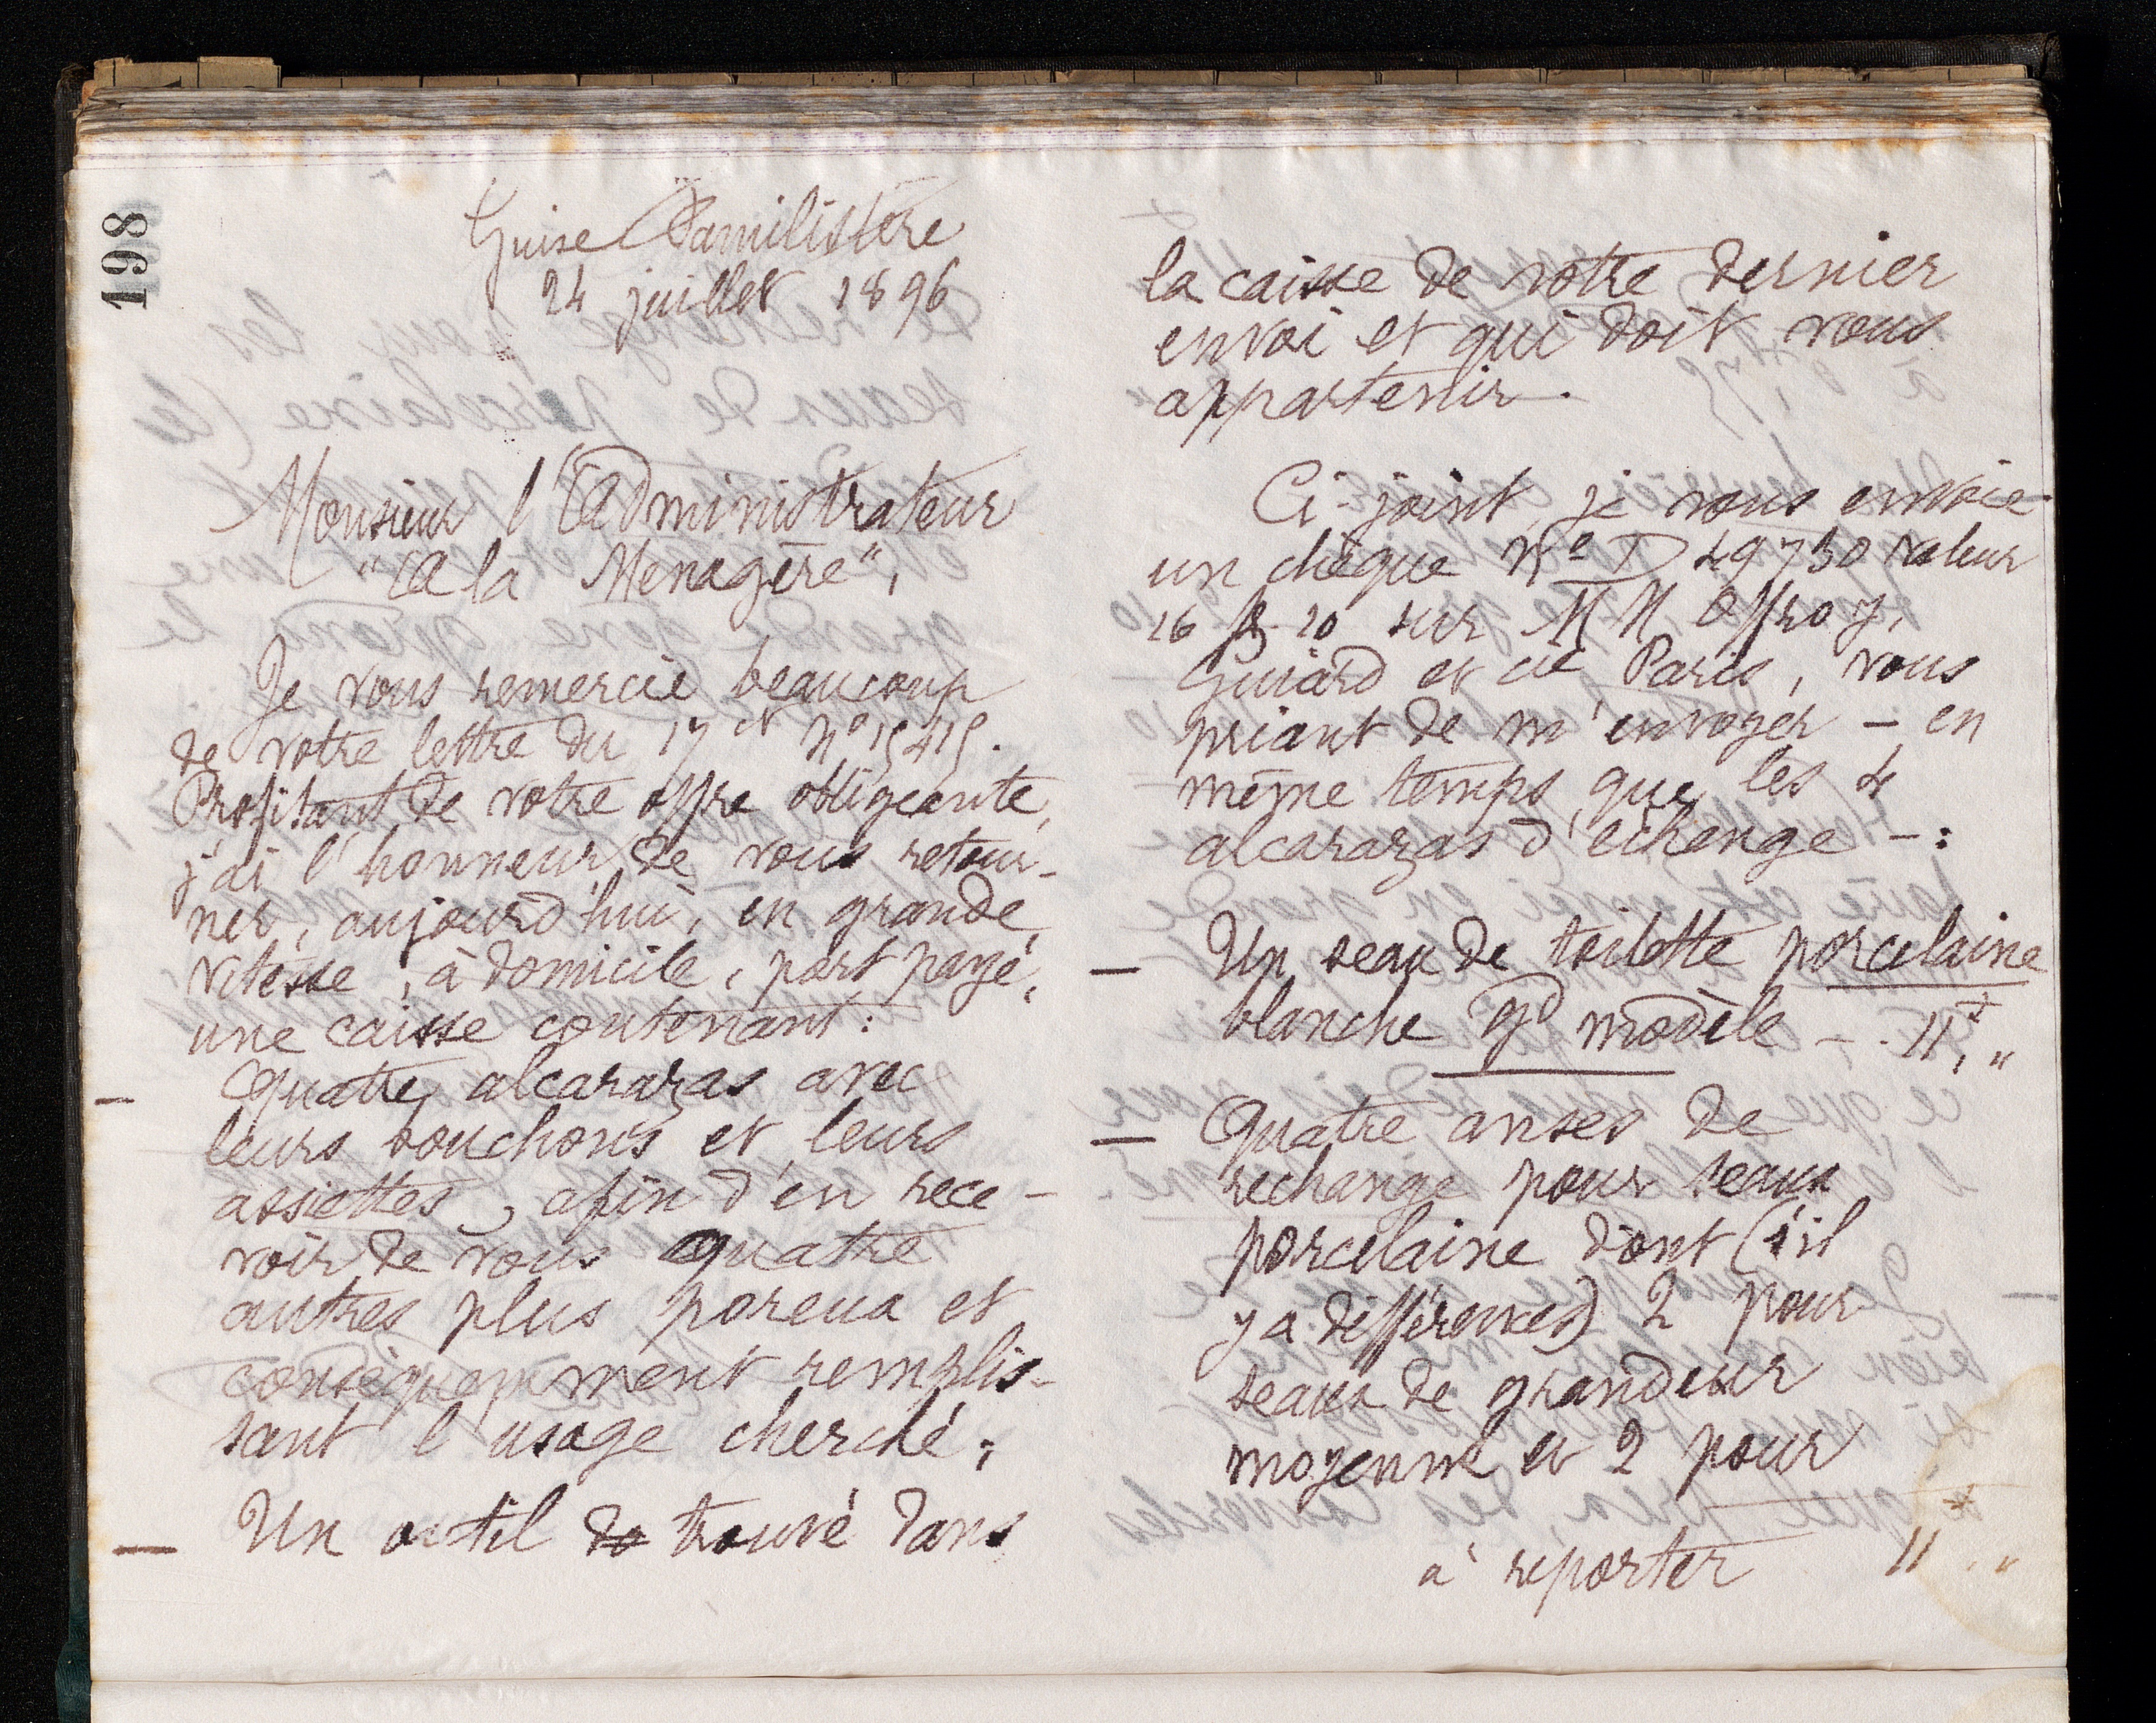 198
Guise Familistère
24 juillet 1896
Monsieur l'Administrateur
"A la Menagère",
Je vous remercie beaucoup
de votre lettre du 17 ct No 15415.
Profitant de votre offre obligeante,
j'ai l'honneur de vous retour-
ner, aujourd'hui, en grande
vitesse, à domicile, port payé,
une caisse contenant :
— Quatre alcarazas avec
leurs bouchons et leurs
assiettes, afin d'en rece-
voir de vous quatre
autres plus poreux et
conséquemment remplis-
sant l'usage cherché ;
— Un outil de trouvé dans
la caisse de votre dernier
envoi et qui doit vous
appartenir.
Ci-joint, je vous envoie
un chèque No D 49730 valeur
26 f. 20 sur MM Offroy,
Guiard et cie Paris, vous
priant de m'envoyer — en
même temps que les 4
alcarazas d'échange — :
— Un seau de toilette porcelaine
blanche gd modèle — . 11f, "
— Quatre anses de
rechange pour seaux
porcelaine dont (s'il
y a différences) 2 pour
seaux de grandeur
moyenne et 2 pour
à reporter 11 , "